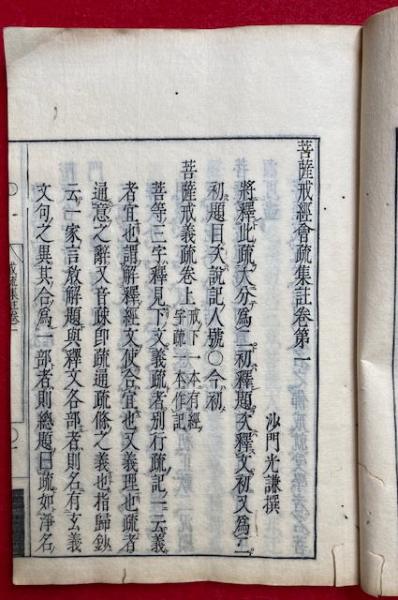 菩薩戒經會疏集註卷第一
沙門光謙撰
將釋此疏大分為二初釋題次釋文初又為二
初題目次說記人號○今初
菩薩戒義疏卷上戒下一本有經字疏一本作記
菩等三字釋見下文義疏者別行疏記二云義
者宜也謂解釋經文使合宜也又義理也疏者
通意之辭又音疎即疏通疏條之義也指歸鈔
云一家言教解題與釋文各部者則名有玄義
文句之異其合為一部者則總題曰疏如淨名
戒疏集註卷一